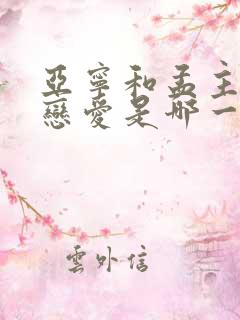 亞寧和孟主
戀愛是哪一
雲外信